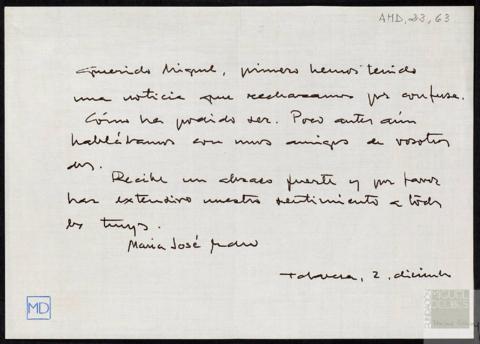 AMD, 23, 63
Querido Miguel, primero hemos tenido
una noticia que rechazamos por confusa.
Cómo ha podido ser. Poco antes aún
hablábamos con unos amigos de vosotros
dos.
Recibe un abrazo fuerte y por favor
haz extensivo nuestro sentimiento a todos
los tuyos.
Maria José
Talavera, 2, diciembre
MD
FUNDACIÓN
MIGUEL
DELIBES